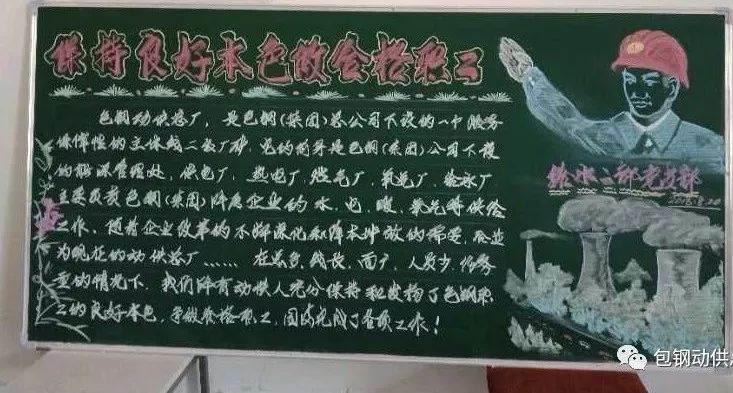 保持良好本色做合格职工
包钢动供总厂，是包钢(集团)总公司下设的一个服务
保障性的主体线二级厂矿，它的前身是包钢(集团)公司下设
的能源管理处，供电厂，热电厂，燃气厂，氧气厂，给水厂
主要负责包钢(集团)所属企业的水，电，暖，氧气等供给
工作，随着企业改革的不断深化和降本增效的需要，合并
为现在的动供总厂……在点多，线长，面广，人员少，任务
重的情况下，我们所有动供人充分保持和发扬了包钢职
工的良好本色，争做合格职工，圆满完成了各项工作！
给水二部党支部
2018.8.20
包钢动供总